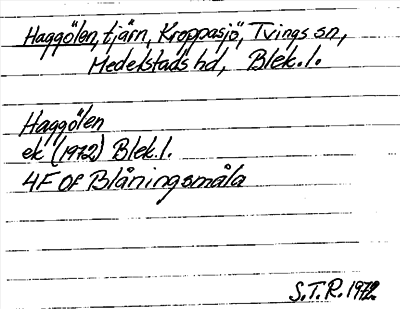 Haggölen, tjärn, Kroppasjö, Tvings sn,
Medelstads hd, Blek.l.
Haggölen
ek (1972) Blek.l.
4F 0f Blåningsmåla
S.T.R. 1972.